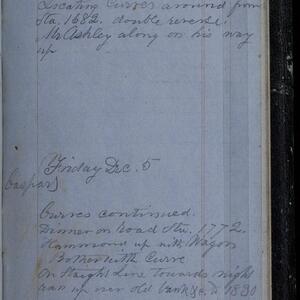 Locating Curves around from
Sta. 1682. double reverse.
Mr Ashley along on his way
up
Friday Dec. 5
Caspar
Curves continued.
Dinner on Road Sta. 1772.
Hammond up with Wagon
Bother with Curve
on Straight Line towards night
ran up over old bank &c. to 1830